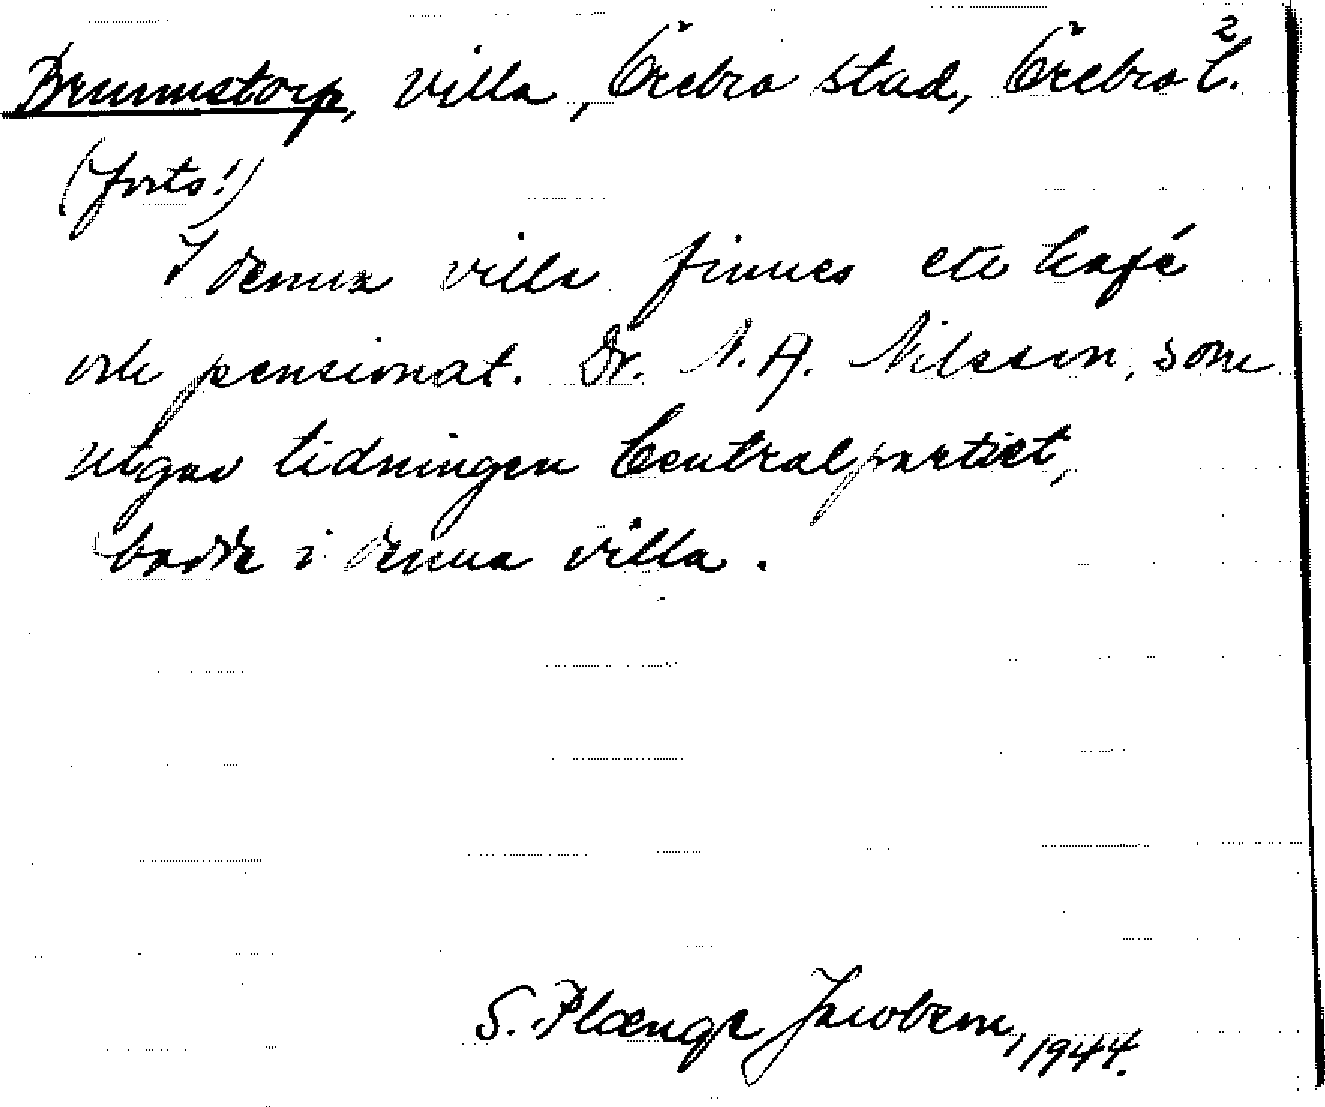 2
Brunnstorp, villa, Örebro stad, Örebro l.
(forts!)
I denna villa finnes ett kafé
och pensionat. Dr. N. A. Nilsson, som
utgav tidningen Centralpartiet,
bodde i denna villa.
S. Plænge Jacobson, 1944.